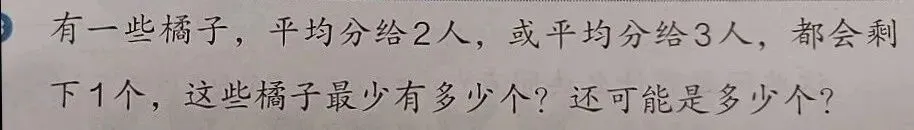 有一些橘子，平均分给2人，或平均分给3人，都会剩
下1个，这些橘子最少有多少个？还可能是多少个？